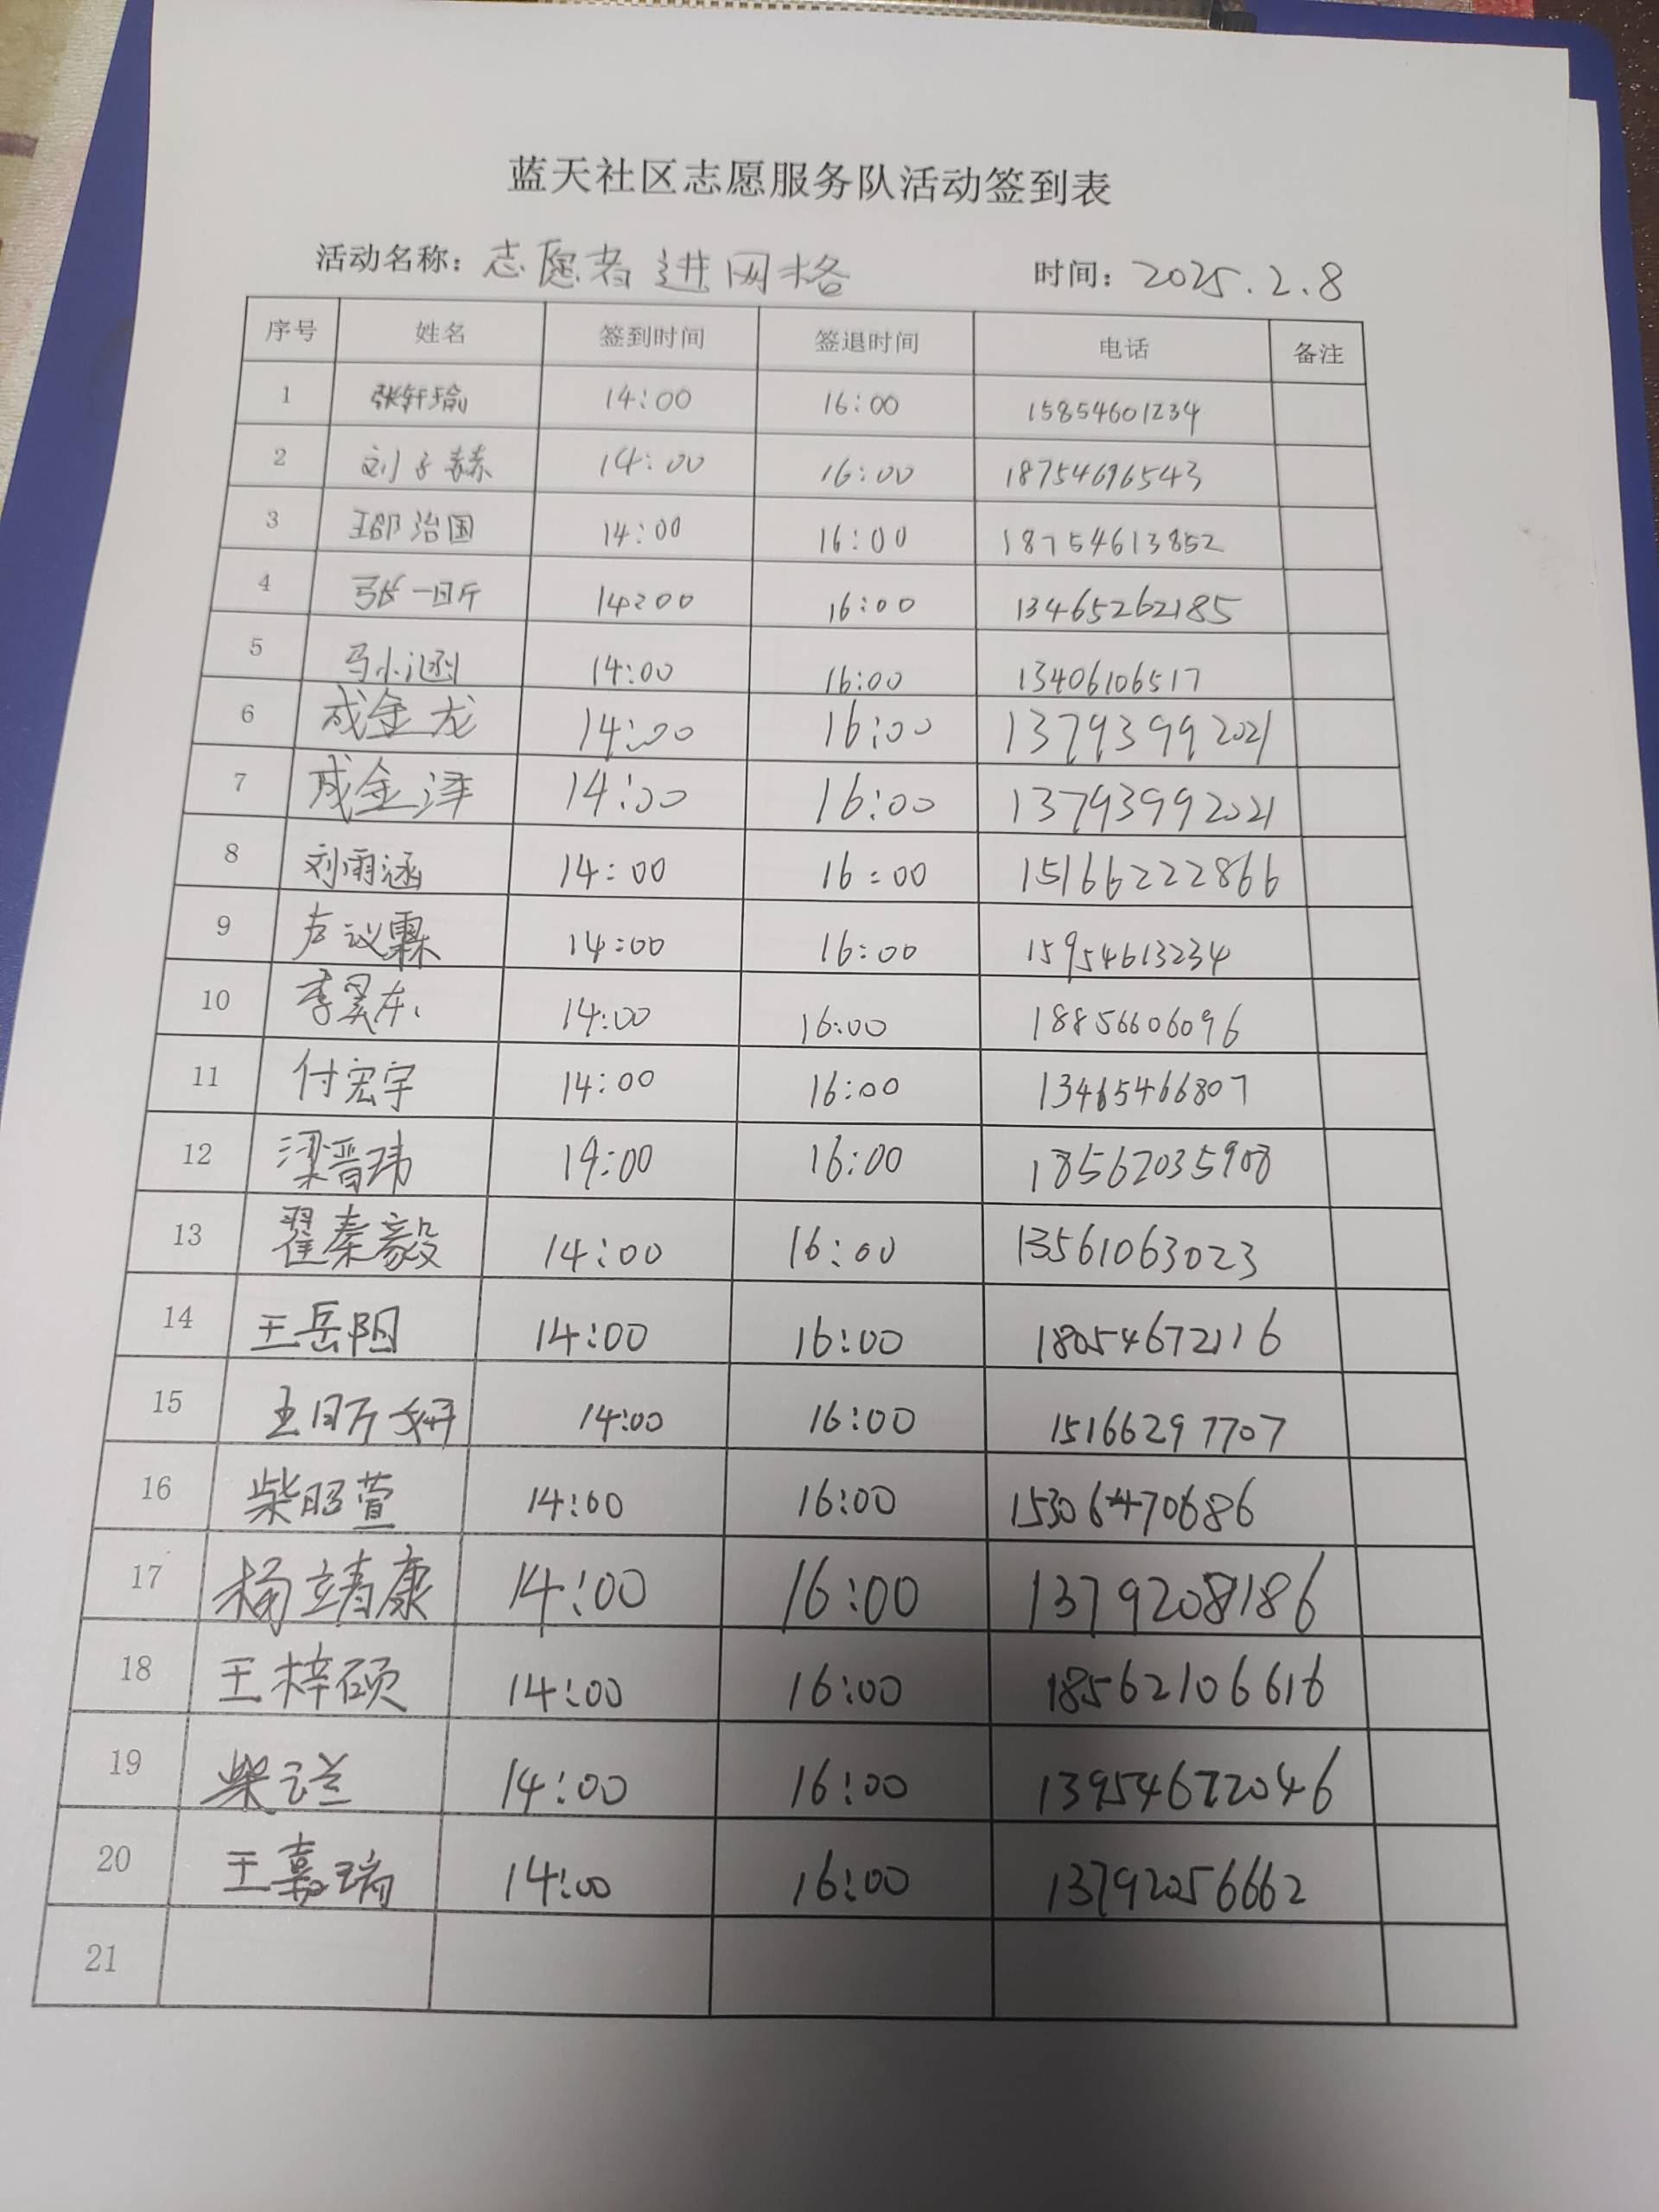 蓝天社区志愿服务队活动签到表
活动名称：志愿者进网格 时间：2025.2.8
序号 姓名 签到时间 签退时间 电话 备注
1 张轩瑜 14:00 16:00 15854601234
2 刘子赫 14:00 16:00 18754696543
3 王郇治国 14:00 16:00 18754613852
4 张一昕 14:00 16:00 13465262185
5 马小涵 14:00 16:00 13406106517
6 成金龙 14:00 16:00 13793992021
7 成金泽 14:00 16:00 13793992021
8 刘雨涵 14:00 16:00 15166222866
9 卢议霖 14:00 16:00 15954613234
10 李昊东 14:00 16:00 18856606096
11 付宏宇 14:00 16:00 13465466807
12 梁晋玮 14:00 16:00 18562035908
13 翟秦毅 14:00 16:00 13561063023
14 王岳阳 14:00 16:00 18054672116
15 王昕妍 14:00 16:00 15166297707
16 柴昭萱 14:00 16:00 15306470686
17 杨靖康 14:00 16:00 13792081186
18 王梓硕 14:00 16:00 18562106616
19 柴 14:00 16:00 13954672046
20 王嘉瑞 14:00 16:00 13792056662
21